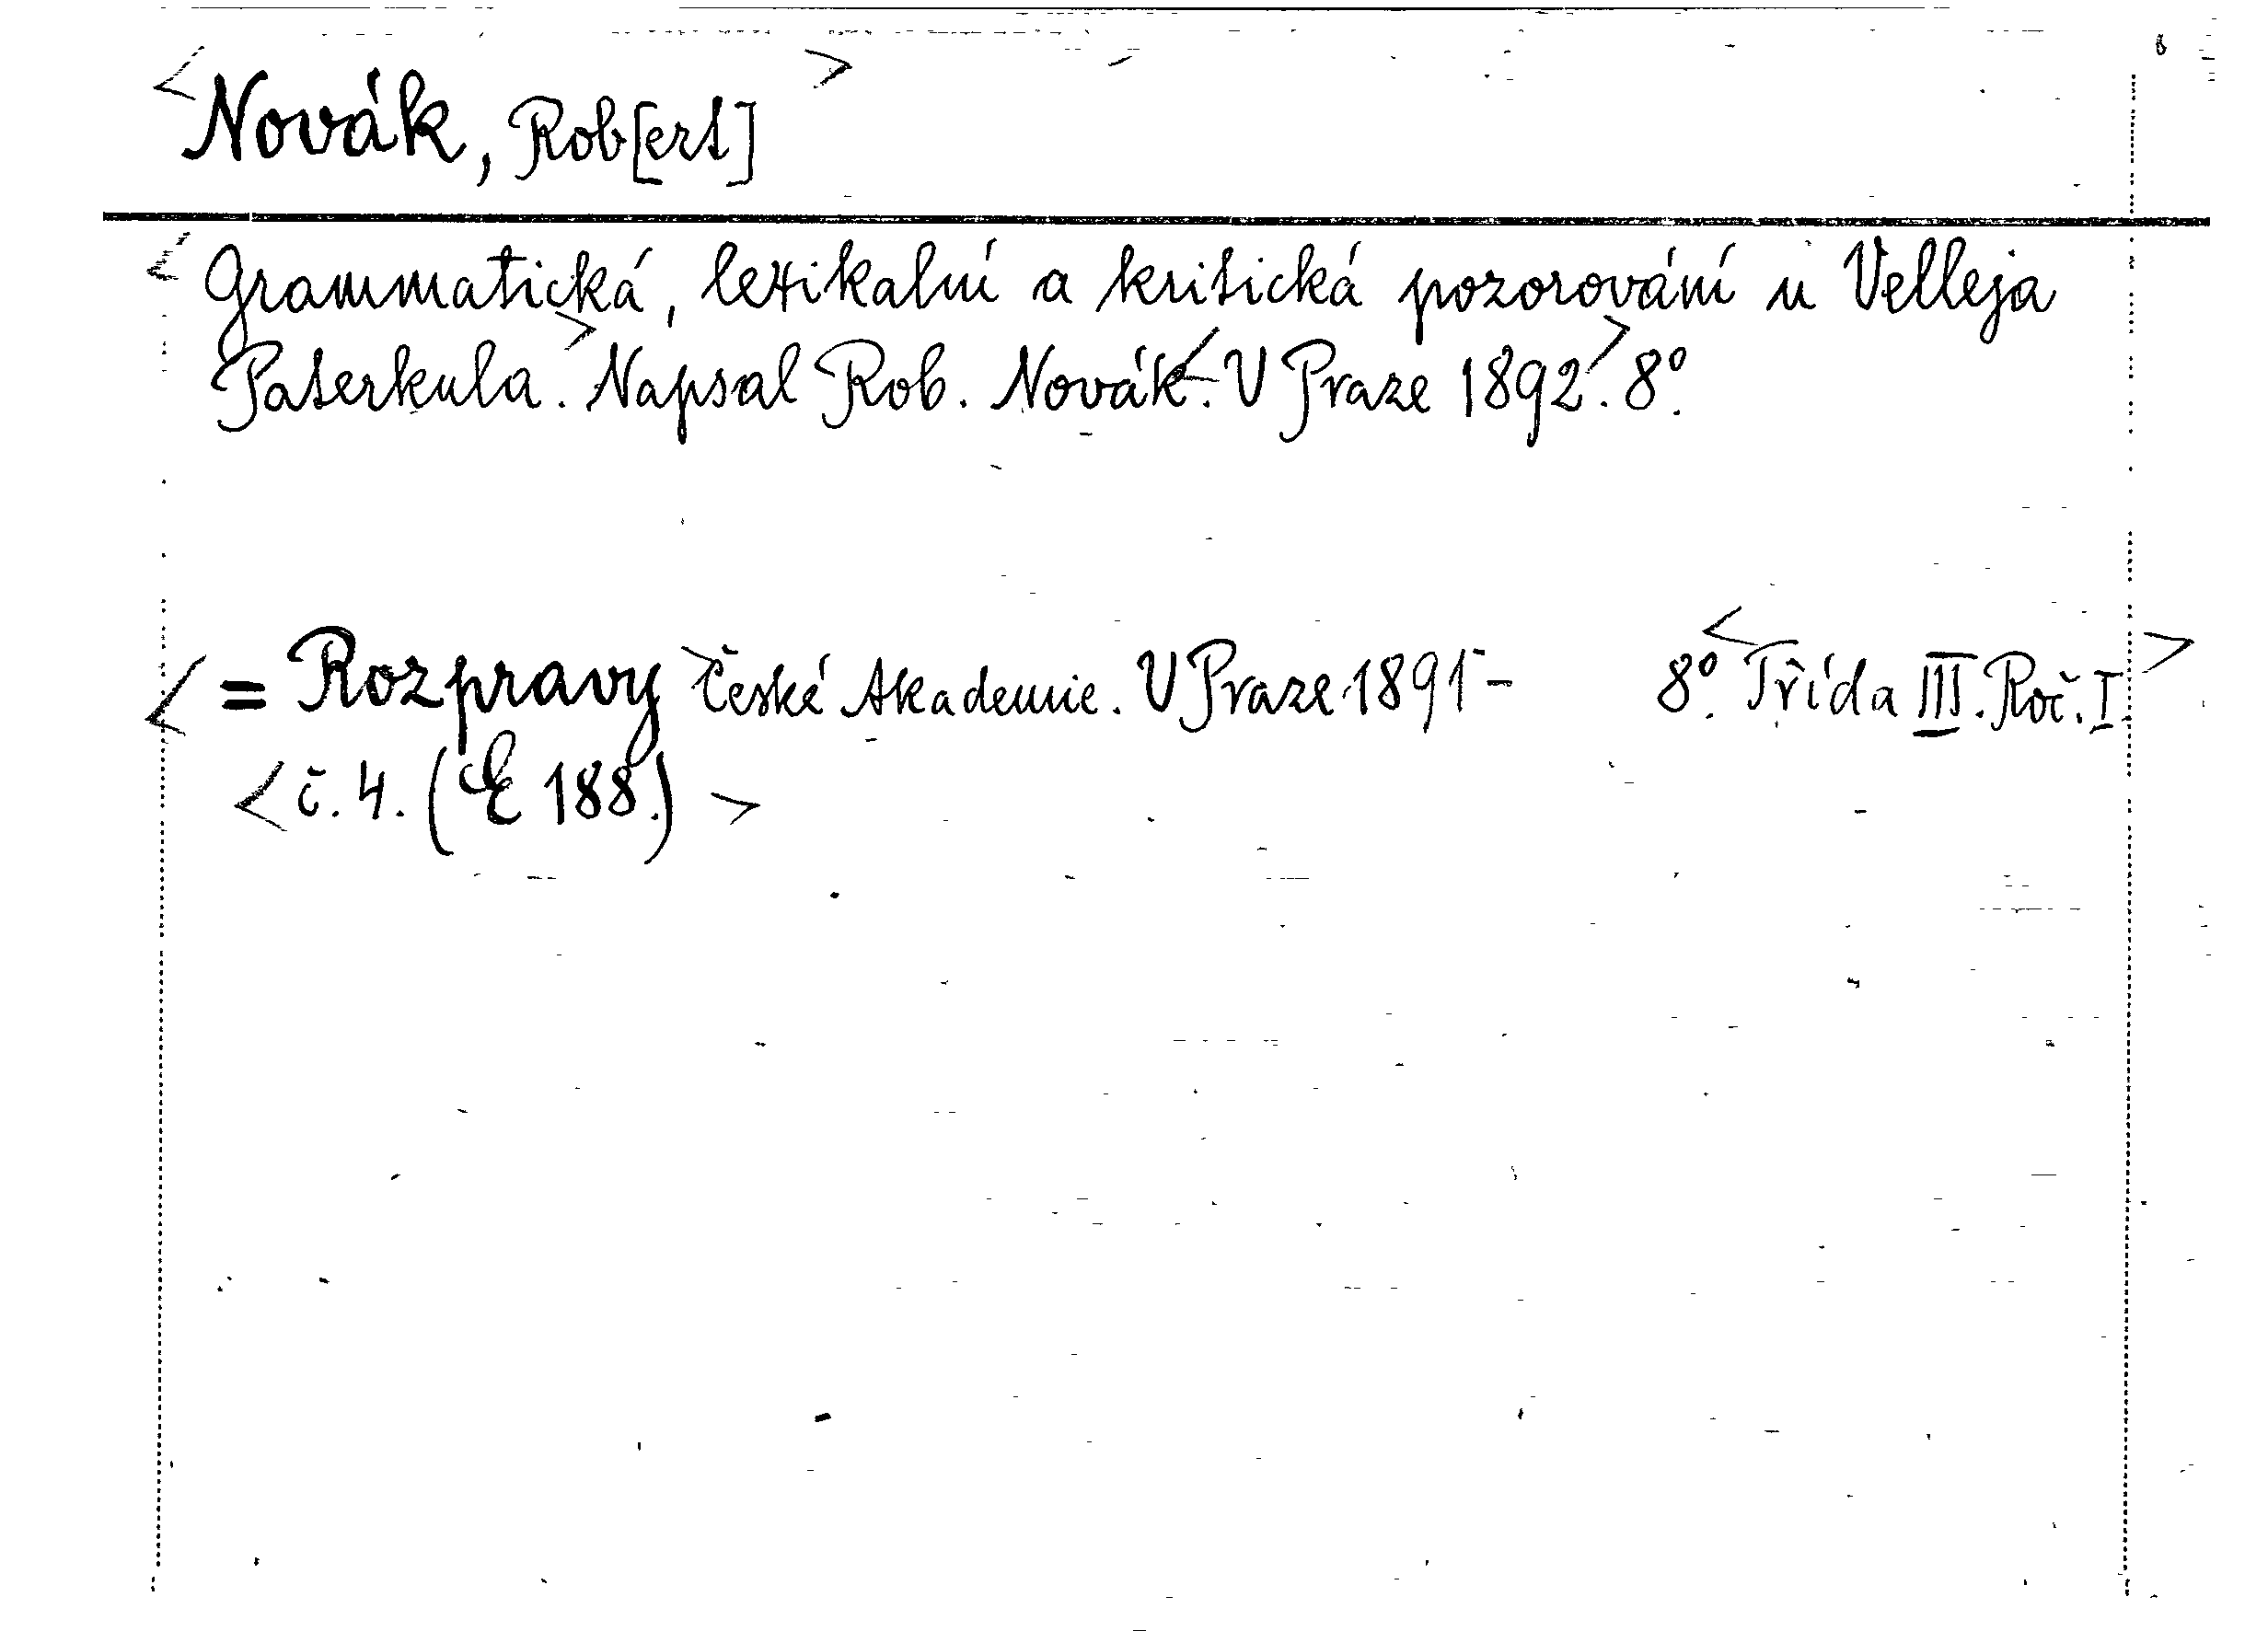 <Novák, Rob[ert]>
<Grammatická, lexikalní a kritická pozorování u Velleja
Paterkula.> Napsal Rob. Novák.< V Praze 1892.> 8º.
<= Rozpravy> České Akademie. V Praze 1891- 8º. <Třída III. Roč. I.>
<č. 4. (E 188.)>